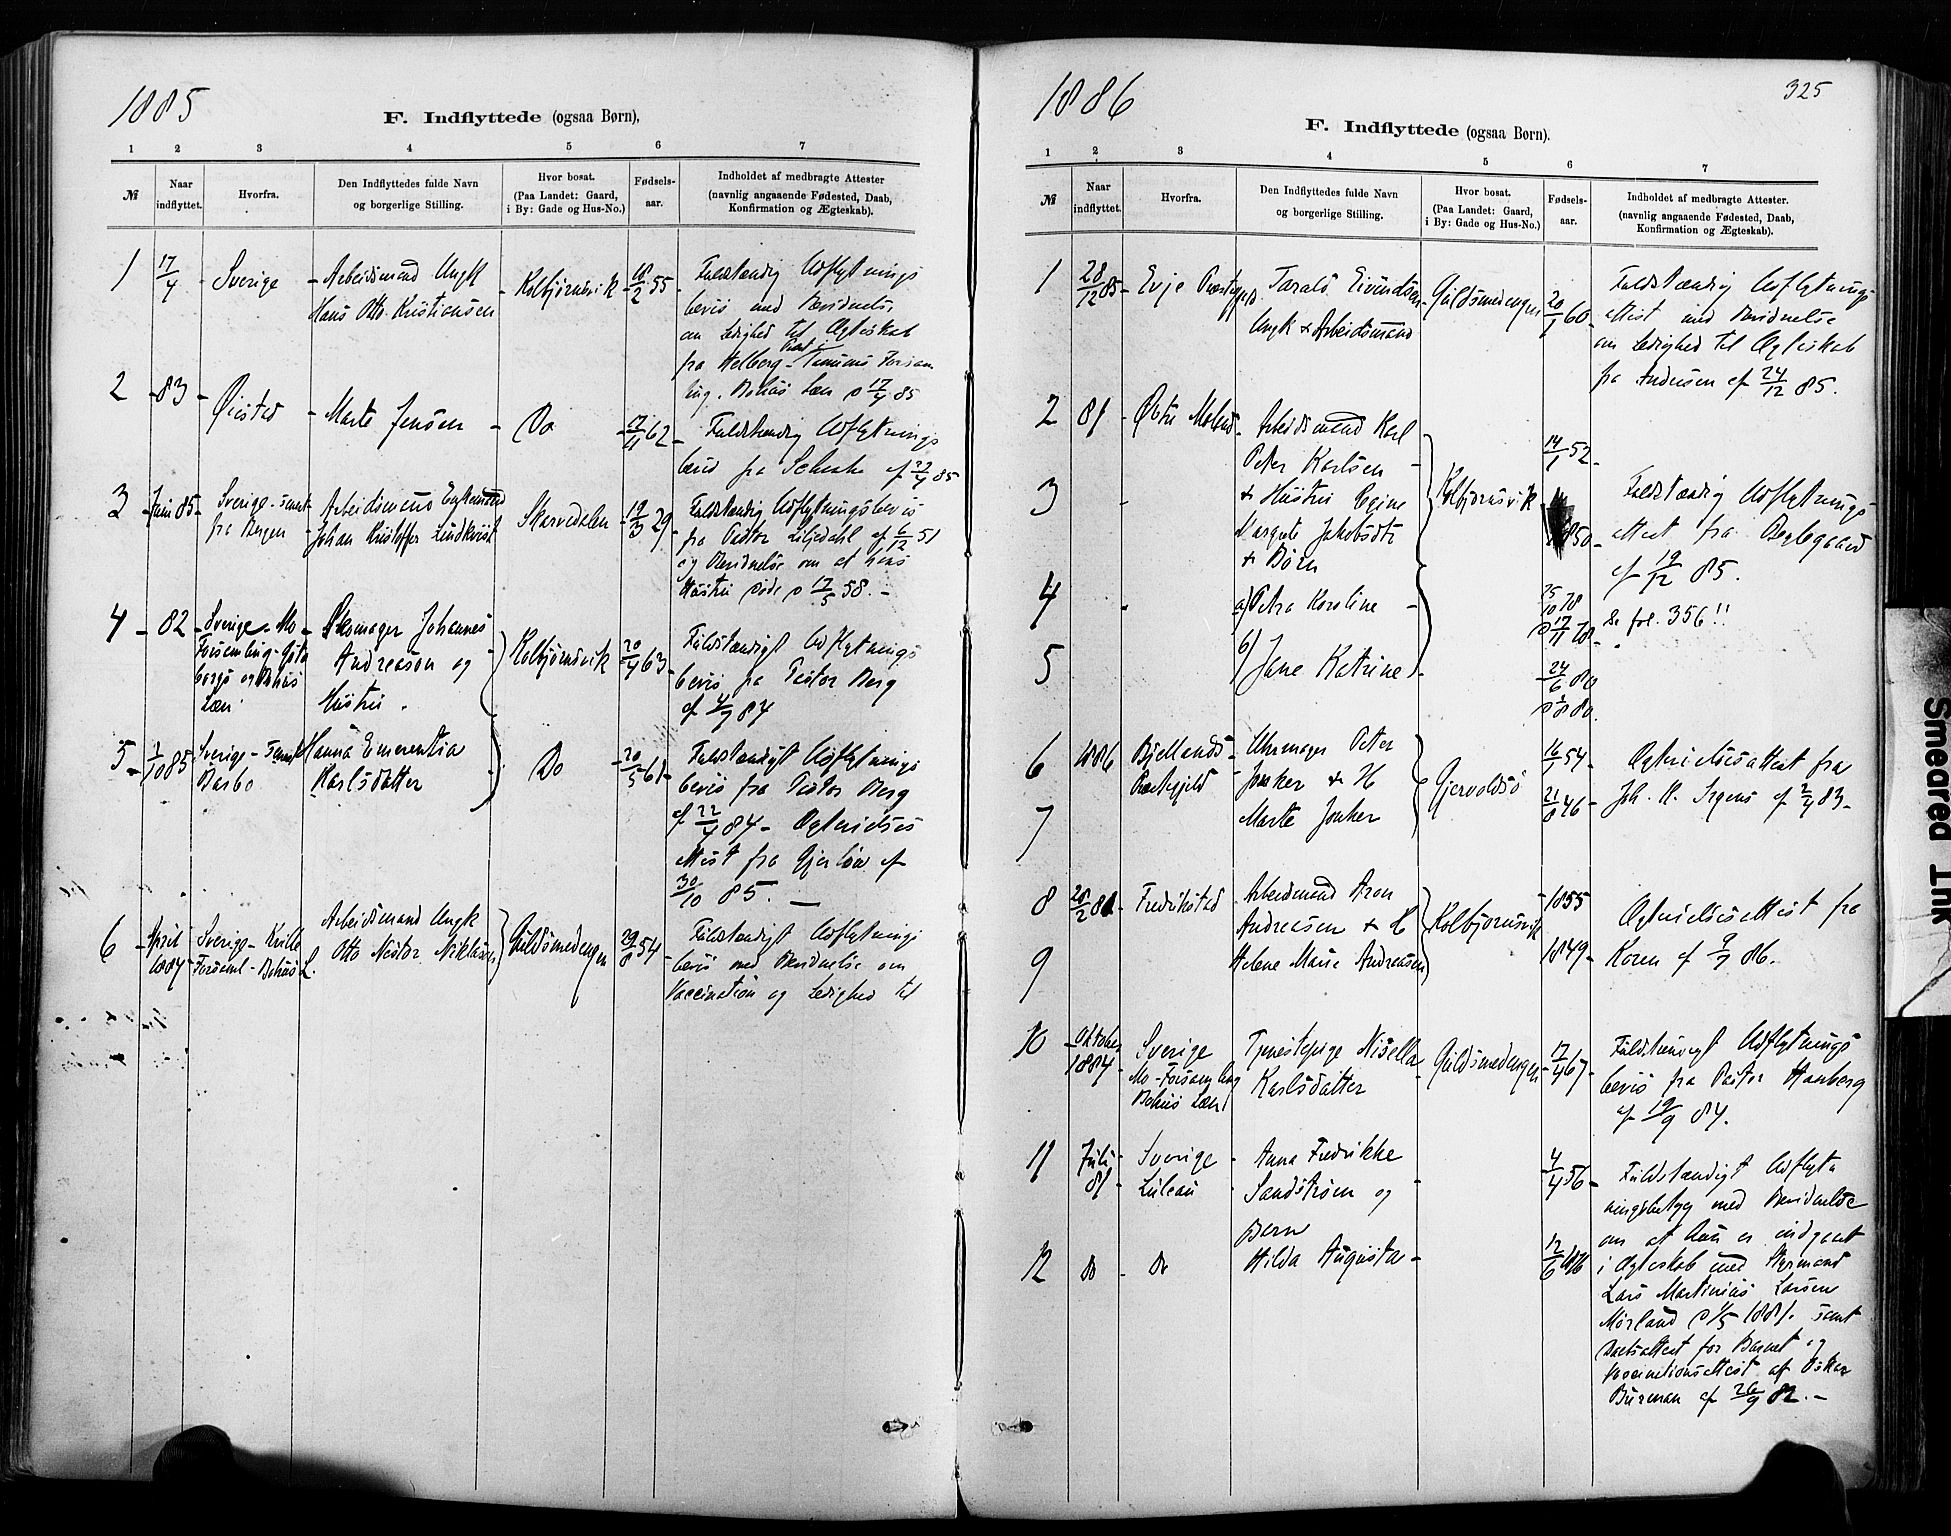 1885
F. Indflyttede (ogsaa Børn),
1 2 3 4 5 6 7
№
Naar indflyttet.
Hvorfra.
Den Indflyttedes fulde Navn
og borgerlige Stilling.
Hvor bosat.
(Paa Landet: Gaard,
i By: Gade og Hus-No.)
Fødsels-
aar.
Indholdet af medbragte Attester
(navnlig angaaende Fødested, Daab,
Konfirmation og Ægteskab).
1 17/4 - Sverige - Arbeidsmand Ungk - Kolbjørnsvik - 18/2 55 - Fuldstændig Udflytnings
Hans Otto Kristiansen
bevis med
om Ledighed til Ægteskab
fra
2 - 83 - Øiestad - Marte Jensen - Do - 62 - Fuldstændig Udflytnings
bevis fra
3 - Juni 85 - Sverige - samt Arbeidsmand Enkemand Skarvedalen - 19/3 29 - Fuldstændig Udflytningsbevis
fra Bergen - Johan Kristoffer Lindkvist
fra Pastor Liljedahl af 6/12 51
og om at hans
Hustru døde d 17/5 58. -
4 - 82 - Sverige - Mo - Skomager Johannes Kolbjørnsvik 20/4 63 - Fuldstændigt Udflytnings
Andreason og
bevis fra Pastor Berg
Læn Hustru
af 4/9 84
5 - 1/10 85 Sverige - samt Hanna Emerentia Do - 20/5 61 - Fuldstændigt Udflytnings
Barbo Karlsdatter
bevis fra Pastor Berg
af 22/4 84 - Ægtevielses
Attest fra Gjerløw af
30/10 85. -
6 - April Sverige - Kville Arbeidsmand Ungk Guldsmedengen 29/8 54 - Fuldstændigt Udflytnings
1884 Forsaml - Bohus L. Otto Nestor Niklasen
bevis med om
Vaccination og Ledighed til
1886
325
F. Indflyttede (ogsaa Børn).
1 2 3 4 5 6 7
№
Naar
indflyttet.
Hvorfra.
Den Indflyttedes fulde Navn
og borgerlige Stilling.
Hvor bosat.
(Paa Landet: Gaard,
i By: Gade og Hus-No.)
Fødsels-
aar.
Indholdet af medbragte Attester.
(navnlig angaaende Fødested, Daab,
Konfirmation og Ægteskab).
1 28/12 85 - Evje Præstegjeld Tarald Eivindsen - Guldsmedengen 20/1 60 - Fuldstændig Udflytnings-
Ungk & Arbeidsmand
Attest med
om Ledighed til Ægteskab
fra Andersen af 24/12 85.
2 81 - Østre Moland - Arbeidsmand Karl 14/1 52 -
Peter Karlsen -
3 - & Hustru Kolbjørnsvik 1850 - Fuldstændig Udflytnings-
Margrete Jakobsdtr
attest fra
& Børn
af 19/12 85.
4 - a) Petra Karoline - 25/10 78 Se fol. 356!!
17/11 78 -
5 b) Jane Katrine - 24/6 80
6 1886 Bjellands - Uhrmager Peter Gjervoldsø 16/1 54 - Ægtevielsesattest fra
Præstegjeld - Junker & H
Joh. af 2/4 83 -
7 Marte Junker 21/8 46 -
8 28/2 81 - Fredrikstad - Arbeidsmand Aron Kolbjørnsvik - 1855 Ægtevielsesattest fra
Andreasen & H
9 Helene Marie Andreasen 1849 - Koren af 9/7 86.
10 - Oktober - Sverige Tjenestepige Nisella Guldsmedengen - 17/4 67 - Fuldstændigt Udflytnings
1884 Mo - Forsamling Karlsdatter
bevis fra Pastor
Bohus Læn
af 19/9 84.
11 Juli - Sverige - Anna Fredrikke 4/4 56 - Fuldstændigt Udflyt-
81 - Luleau Sandstrøm og -
ningsbetyg med
Barn
om at hun er indgaaet
12 Do - Do Hilda Augusta - 12/6 1876
i Ægteskab med Styrmand
Lars Martinius Larsen
Mørland d 1/5 1881. samt
Daabsattest for Barnet og
Vaccinationsattest af Oskar
Burman af 26/9 82. -
Smeared Ink